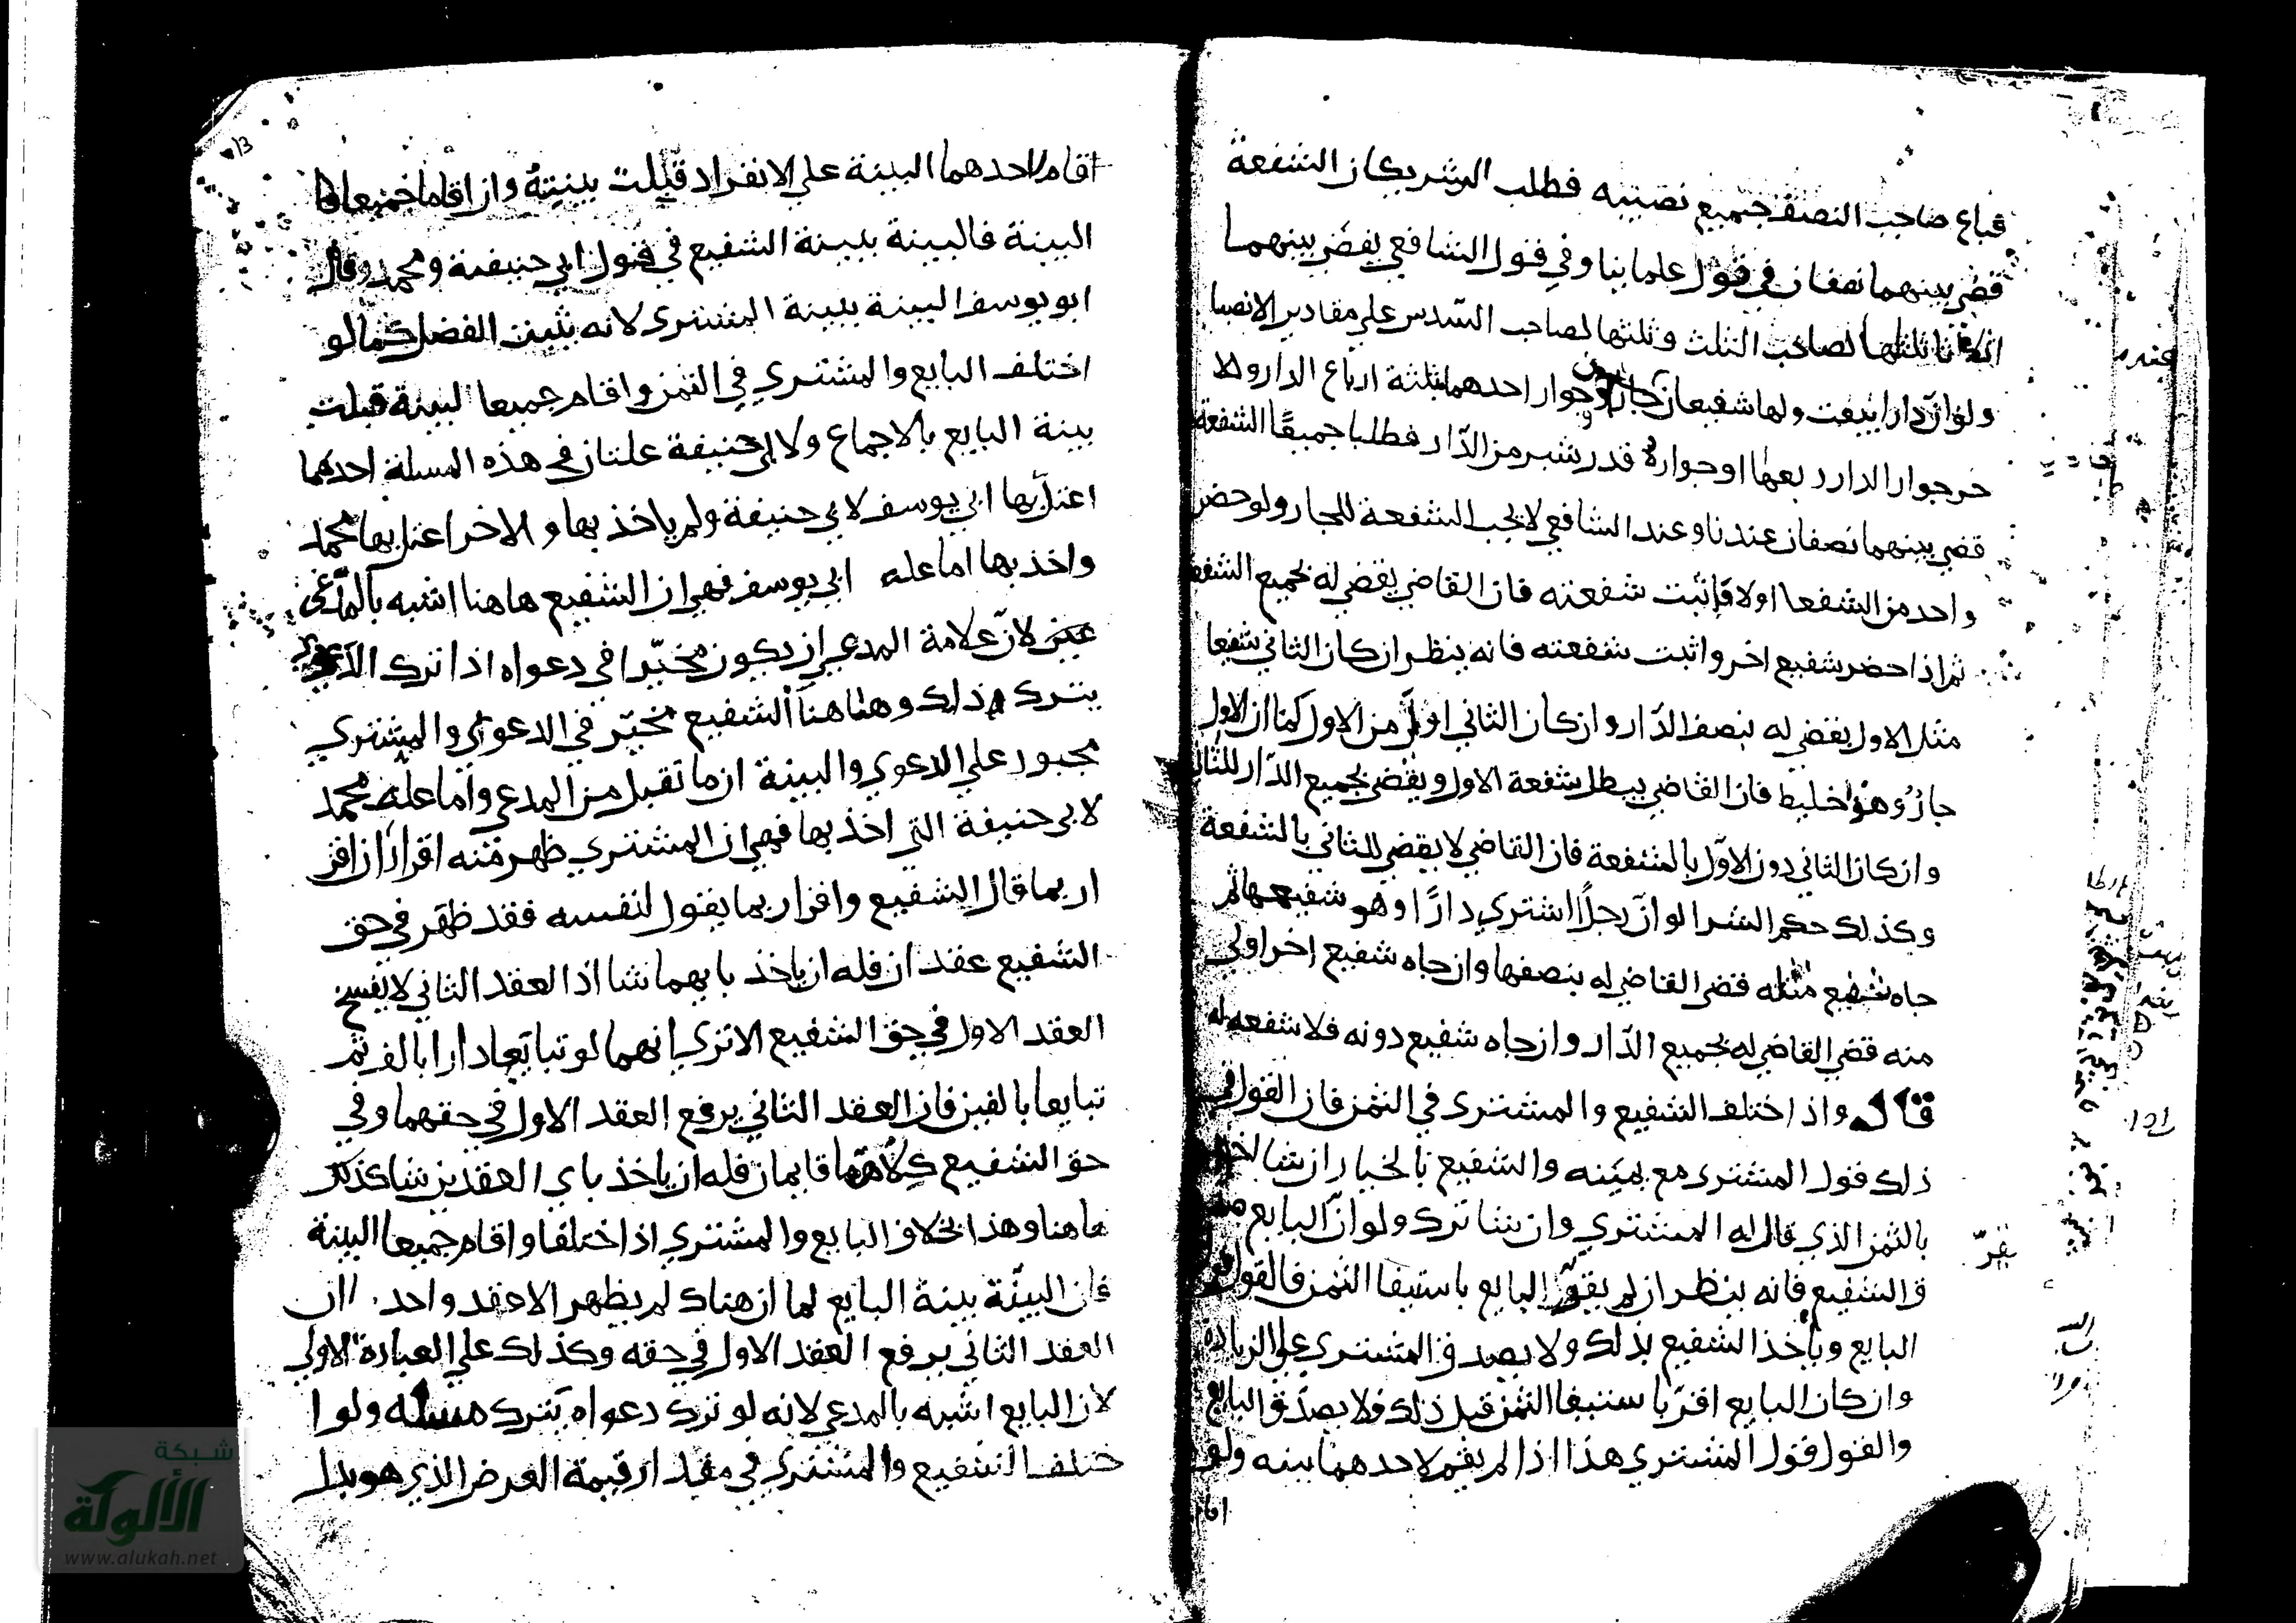 فباع صاحب النصف جميع نصيبه فطلب الشريكان الشفعة
قضي بينهما نصفان في قول علماينا وفي قول الشافعي يقضي بينهما
اثلاثا ثلثها لصاحب الثلث وثلثها لصاحب السدس علي مقادير الانصبا
ولو ان دارا بيعت ولها شفيعان جاران وجوار احدهما بثلثة ارباع الدار والا
خر جوار الدار ربعها او جواره قدر شبر من الدار فطلبا جميعا الشفعة
قضي بينهما نصفان عندنا وعند الشافعي لا يجب الشفعة للجار ولو حضر
واحد من الشفعا اولا فاثبت شفعته فان القاضي يقضي له بجميع الشفعة
ثم اذا حضر شفيع اخر واثبت شفعته فانه ينظر ان كان الثاني شفيعا
مثل الاول يقضي له بنصف الدار وان كان الثاني اولي من الاول كما ان الاول
جار وهو خليط فان القاضي يبطل شفعة الاول ويقضي بجميع الدار للثاني
وان كان الثاني دون الاول بالشفعة فان القاضي لا يقضي للثاني بالشفعة
وكذلك حكم الشرا لو ان رجلا اشتري دارا وهو شفيعها ثم
جاه شفيع مثله قضي القاضي له بنصفها وان جاه شفيع اخر اولي
منه قضي القاضي له بجميع الدار وان جاه شفيع دونه فلا شفعة له
قال واذا اختلف الشفيع والمشتري في الثمن فان القول في
ذلك قول المشتري مع يمينه والشفيع بالخيار ان شا اخذ
بالثمن الذي قال له المشتري وان شا ترك ولو ان البايع صد
ق الشفيع فانه ينظر ان لم يقر البايع باستيفا الثمن فالقول قول
البايع وياخذ الشفيع بذلك ولا يصدق المشتري علي الزيادة
وان كان البايع اقر باستيفا الثمن قبل ذلك فلا يصدق البايع
والقول قول المشتري هذا اذا لم يقم لاحدهما بينه ولو
اقا
يقر
اقام لاحدهما البينة علي الانفراد قبلت بينته وان اقاما جميعا
البينة فالبينة بينة الشفيع في قول ابي حنيفة ومحمد وقال
ابو يوسف البينة بينة المشتري لانه يثبت الفضل كما لو
اختلف البايع والمشتري في الثمن واقام جميعا البينة قبلت
بينة البايع بالاجماع ولابي حنيفة علتان في هذه المسلة احدهما
اعتل بها ابي يوسف لابي حنيفة ولم ياخذ بها والاخر اعتل بها محمد
واخذ بها اما علة ابي يوسف فهي ان الشفيع هاهنا اشبه بالمد عي
لان علامة المدعي ان يكون مخيرا في دعواه اذا ترك الدعوي
يترك وذلك وهاهنا الشفيع مخير في الدعوي والمشتري
مجبور علي الدعوي والبينة ان ما تقبل من المدعي واما علة محمد
لابي حنيفة التي اخذ بها فهي ان المشتري ظهر منه اقراران اقر
ار بما قال الشفيع واقرار بما يقول لنفسه فقد ظهر في حق
الشفيع عقدان فله ان ياخذ بايهما شا اذا العقد الثاني لا يفسخ
العقد الاول في حق الشفيع الا تري انهما لو تبايعا دارا بالف ثم
تبايعا بالفين فان العقد الثاني يرفع العقد الاول في حقهما وفي
حق الشفيع كلاهما قايمان فله ان ياخذ باي العقدين شا كذلك
هاهنا وهذا بخلاف البايع والمشتري اذا اختلفا واقام جميعا البينة
فان البينة بينة البايع لما ان هناك لم يظهر الا عقد واحد لان
العقد الثاني يرفع العقد الاول في حقه وكذلك علي العبارة الاولي
لان البايع اشبه بالمدعي لانه لو ترك دعواه يترك مسله ولو ا
ختلف الشفيع والمشتري في مقدار قيمة العرض الذي هو بدل
شبكة
الألوكة
www.alukah.net